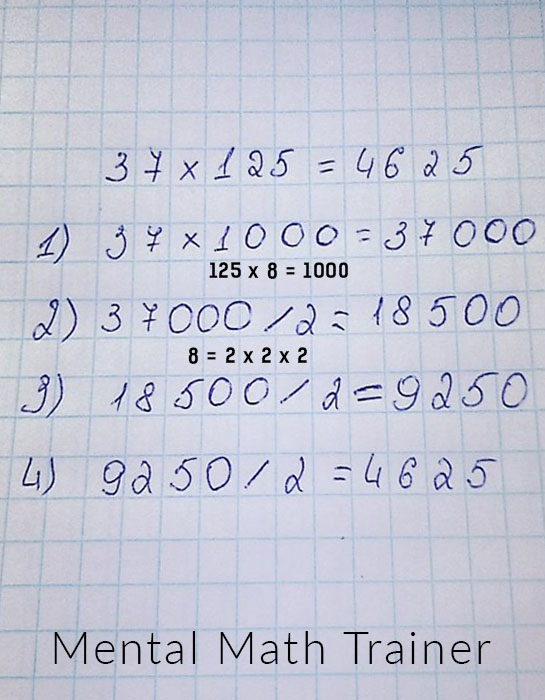 37 × 125 = 4625
1) 37 × 1000 = 37000
125 x 8 = 1000
2) 37000 / 2 = 18500
8 = 2 x 2 x 2
3) 18500 / 2 = 9250
4) 9250 / 2 = 4625
Mental Math Trainer